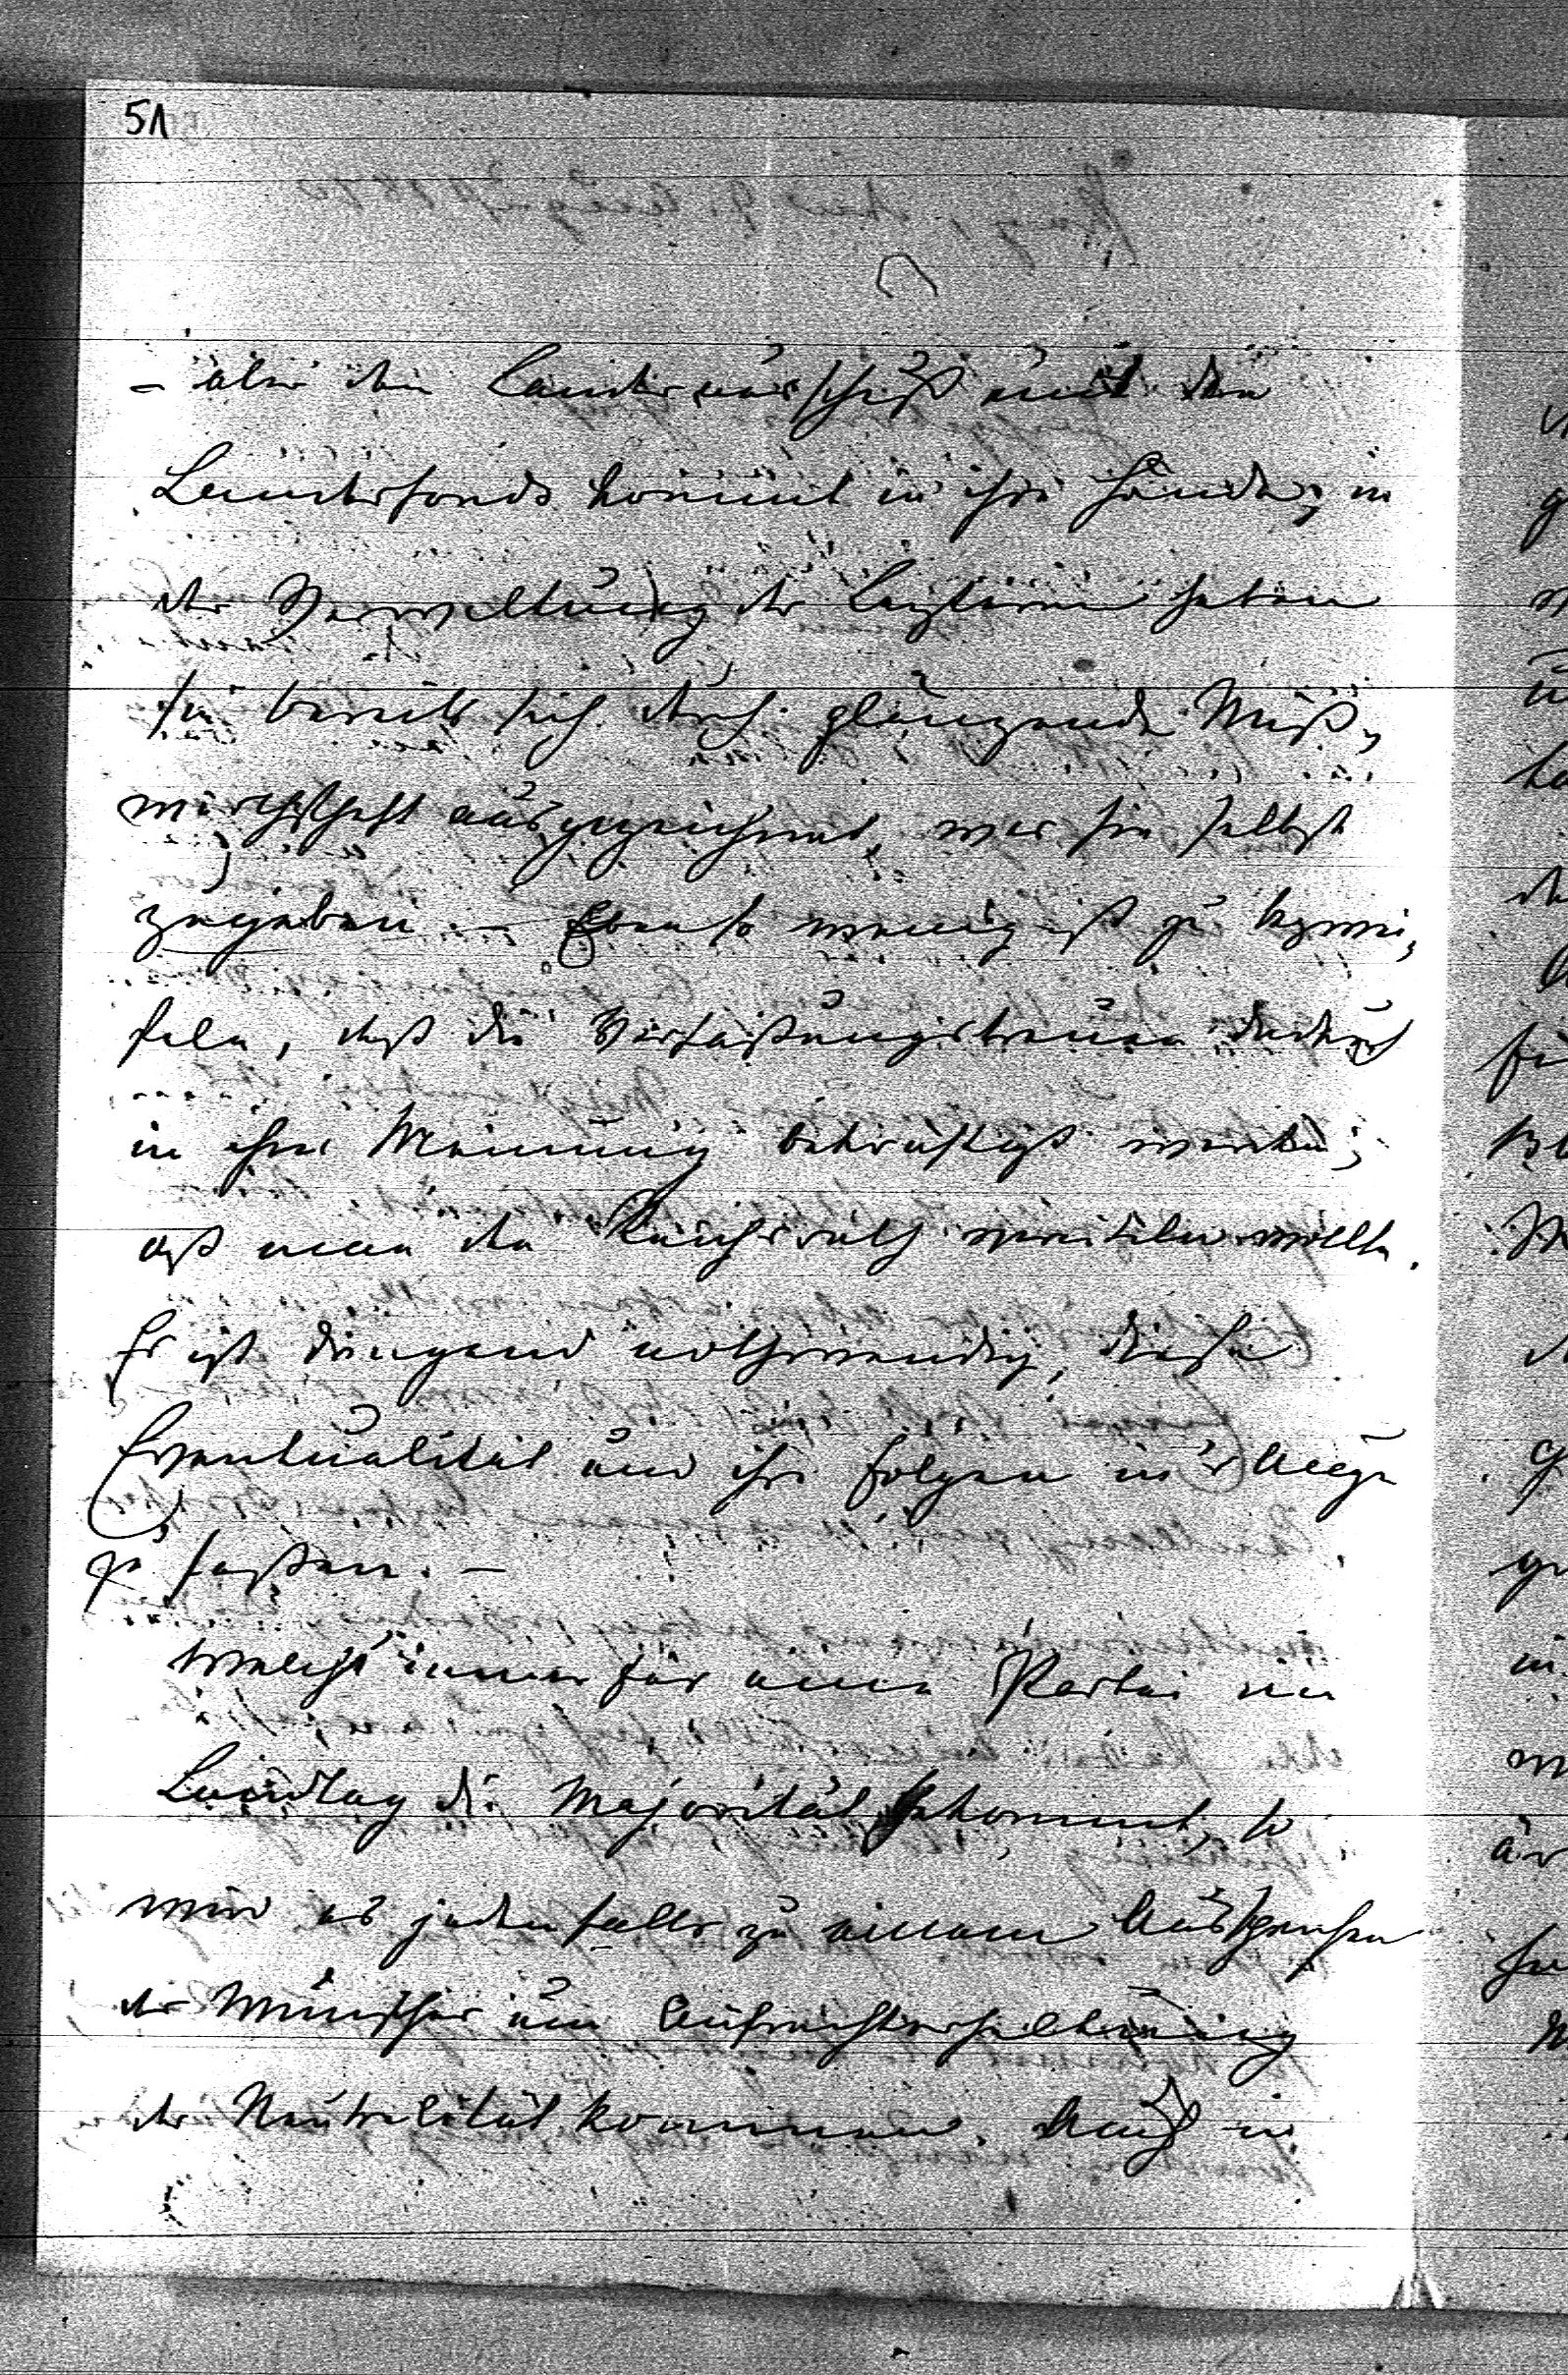 51
– aber der Landesausschuß und der
Landesfonds kommt in ihre Hände, in
der Verwaltung der letzteren haben
sie bereits sich durch glänzende Miß-
wirthschaft ausgezeichnet, was sie selbst
zugeben. – Ebenso wenig ist zu bezwei-
feln, daß die Verfaßungstreuen dadurch
in ihrer Meinung bekräftigt werden,
daß man den Reichsrath vereiteln wollte.
Es ist dringend nothwendig, diese
Eventualität und ihre Folgen in's Auge
zu faßen. –
Welch' immer für eine Partei im
Landtag die Majorität bekommt, so
wird es jedenfalls zu einem Aussprechen
der Wünsche um Aufrechterhaltung
der Neutralität kommen. Auch in